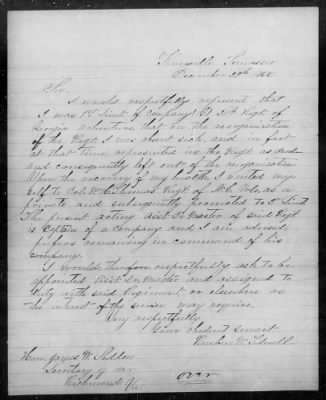 Tennessee
December 29th 1862
Sir.
I would respectfully represent that
I was 1st Lieut of Company D 35th Regt of
Georgia Volunteers that on the reorganization
of the Regt I was absent sick and in fact
at that time represented in the Regt as dead
and consequently left out of the reorganization
Upon the recovery of my health I united my
self to Col. Wm Thomas Regt of N.C. Vols, as a
private and subsequently promoted to 2nd Lieut
The present acting Asst Qr Master of said Regt
is Captain of a Company and I am advised,
prefers remaining in command of his
company.
I would therefore respectfully ask to be
appointed Asst Qr Master and assigned to
duty with said Regiment or elsewhere as
the interest of the service may require.
Very respectfully
Your obedient servant
Reuben W. Tidwell
Hon. James A. Seddon
Secretary of War
Richmond Va.
over